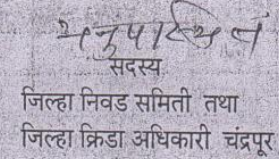 अनुपस्थित
सदस्य
जिल्हा निवड समिती तथा
जिल्हा क्रिडा अधिकारी चंद्रपूर